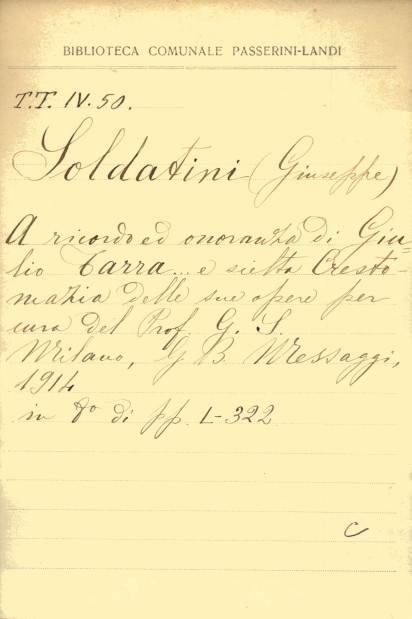 BIBLIOTECA COMUNALE PASSERINI-LANDI
T.T. IV. 50.
Soldatini (Giuseppe)
A ricordo ed onoranza di Giu=
lio Tarra... e scelta Cresto-
mazia delle sue opere per
cura del Prof. G. S.
Milano, G B Messaggi,
1914
in 8º di pp. L-322
C